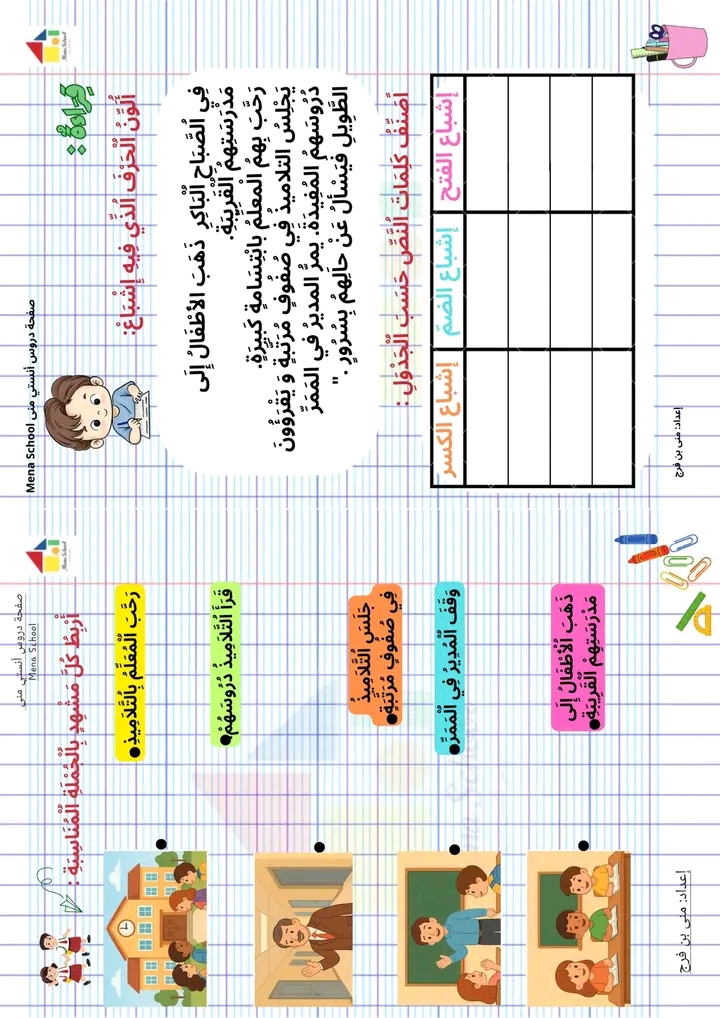 Mena School
صفحة دروس أنستي منى Mena School
قِرَاءَةٌ :
أُلَوِّنُ الْحَرْفَ الَّذِي فِيهِ إِشْبَاعٌ:
فِي الصَّبَاحِ الْبَاكِرِ ذَهَبَ الأَطْفَالُ إِلَى
مَدْرَسَتِهِمُ الْقَرِيبَةِ.
رَحَّبَ بِهِمُ الْمُعَلِّمُ بِابْتِسَامَةٍ كَبِيرَةٍ.
يَجْلِسُ التلاميذُ فِي صُفُوفٍ مُرَتَّبَةٍ وَ يَقْرَؤُونَ
دُرُوسَهُمُ المُفِيدَةَ. يمرُّ المديرُ في المَمَرِّ
الطَّوِيلِ فَيَسْأَلُ عَنْ حالِهِمْ بِسُرُورٍ ."
أُصَنِّفُ كَلِمَاتِ النَّصِّ حَسَبَ الْجَدْوَلِ :
إشباع الفتح إشباع الضمّ إشباع الكسر
إعداد: منى بن فرج
Mena School
صفحة دروس أنستي منى
Mena School
أَرْبِطُ كُلَّ مَشْهَدٍ بِالْجُمْلَةِ الْمُنَاسِبَةِ :
رَحَّبَ الْمُعَلِّمُ بِالتَّلَامِيذِ
قَرَأَ التَّلَامِيذُ دُرُوسَهُمْ
جَلَسَ التَّلَامِيذُ
فِي صُفُوفٍ مُرَتَّبَةٍ
وَقَفَ الْمُدِيرُ فِي الْمَمَرِّ
ذَهَبَ الْأَطْفَالُ إِلَى
مَدْرَسَتِهِمُ الْقَرِيبَةِ
إعداد: منى بن فرج